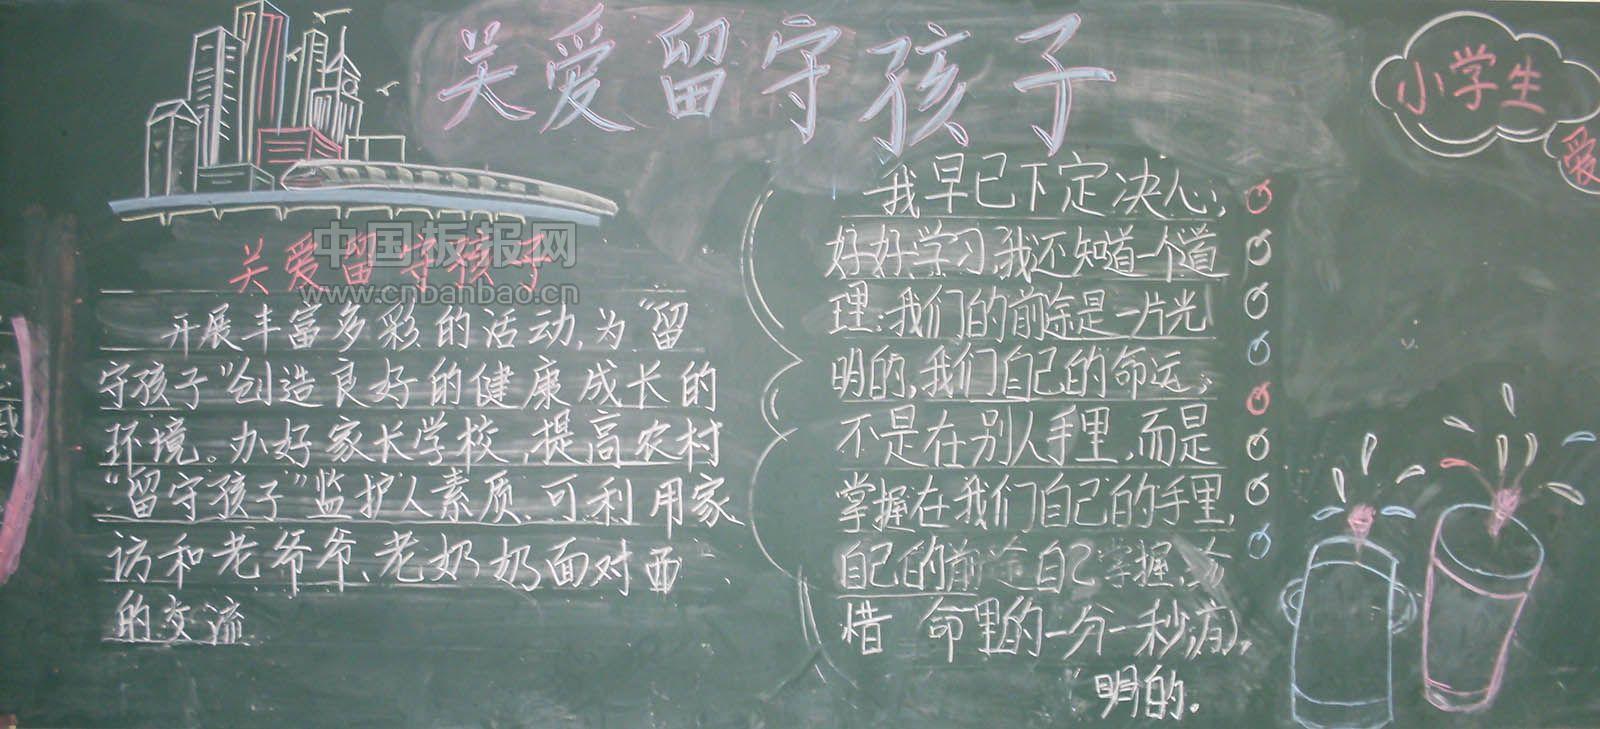 关爱留守孩子
小学生
爱
关爱留守孩子
中国板报网
www.cnbanbao.cn
开展丰富多彩的活动,为“留
守孩子”创造良好的健康成长的
环境。办好家长学校,提高农村
“留守孩子”监护人素质,可利用家
访和老爷爷、老奶奶面对面
的交流
我早已下定决心,
好好学习,我还知道一个道
理:我们的前途是一片光
明的,我们自己的命运,
不是在别人手里,而是
掌握在我们自己的手里,
自己的前途自己掌握,
惜 命里的一分一秒,
明的.